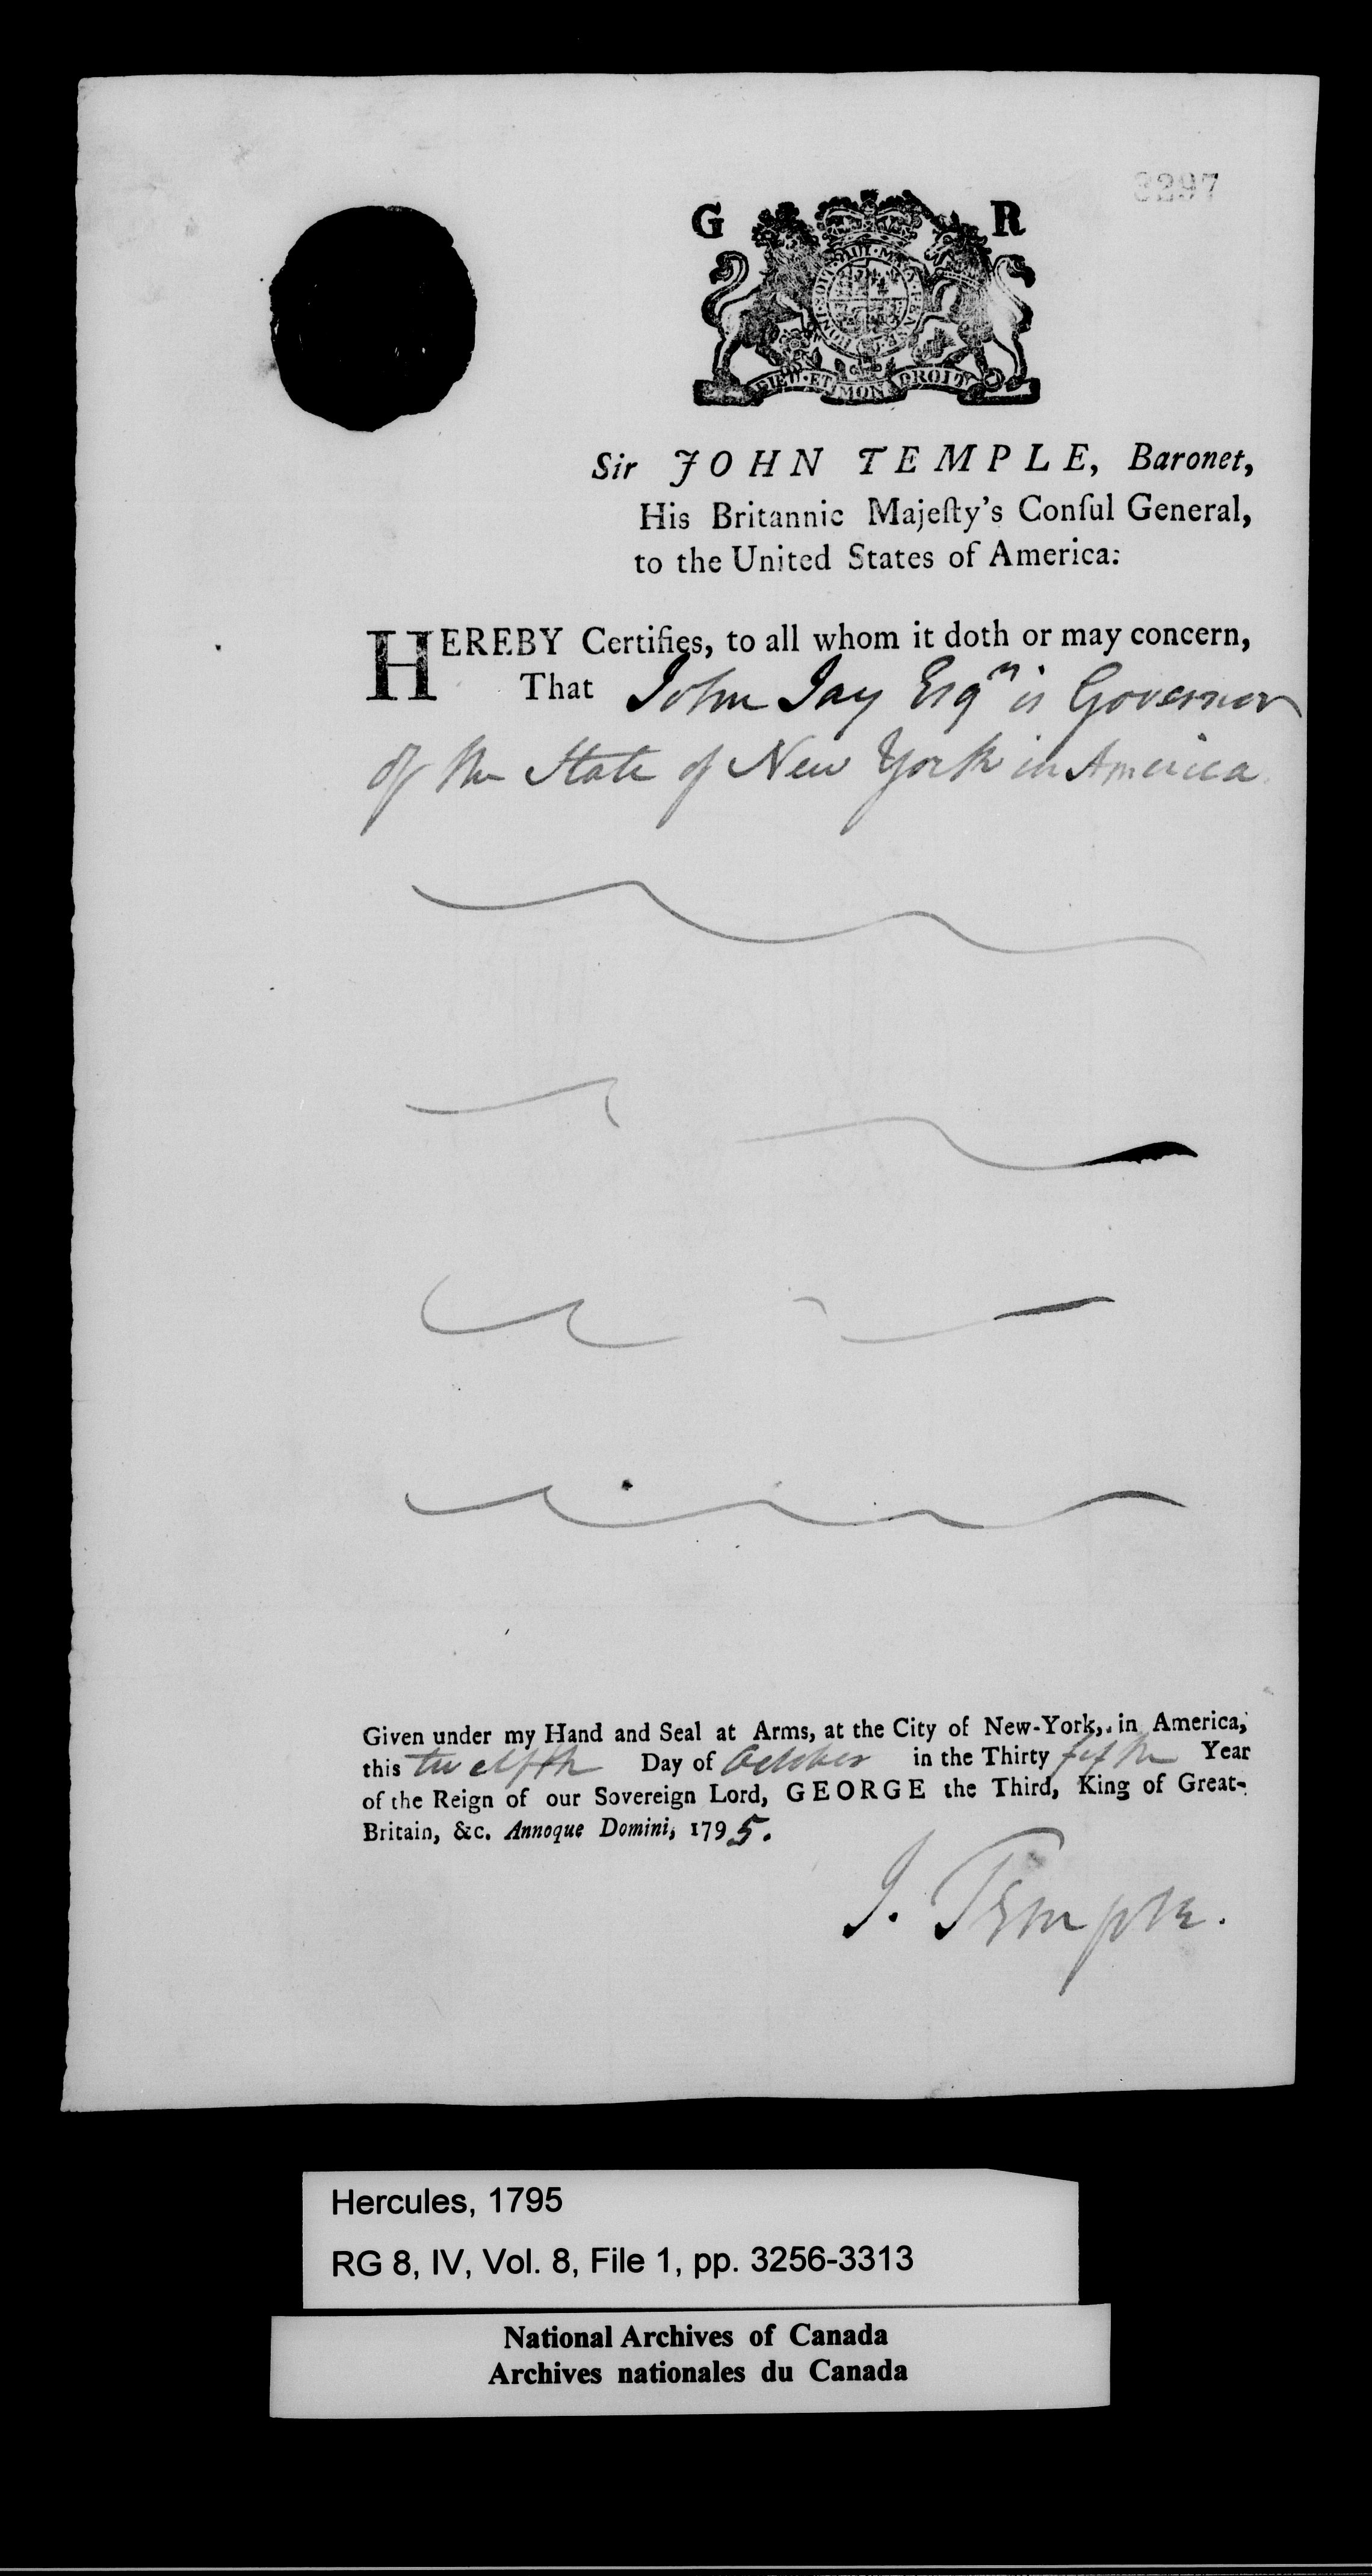 3297
G R
HONI·SOIT·QUI·MAL·Y·PENSE
DIEU·ET·MON DROIT
Sir JOHN TEMPLE, Baronet,
His Britannic Majeſty's Conſul General,
to the United States of America:
HEREBY Certifies, to all whom it doth or may concern,
That John Jay Esqr is Governor
of the State of New York in America
Given under my Hand and Seal at Arms, at the City of New-York, in America,
this twelfth Day of October in the Thirty fifth Year
of the Reign of our Sovereign Lord, GEORGE the Third, King of Great-
Britain, &c. Annoque Domini, 1795.
J. Temple.
Hercules, 1795
RG 8, IV, Vol. 8, File 1, pp. 3256-3313
National Archives of Canada
Archives nationales du Canada